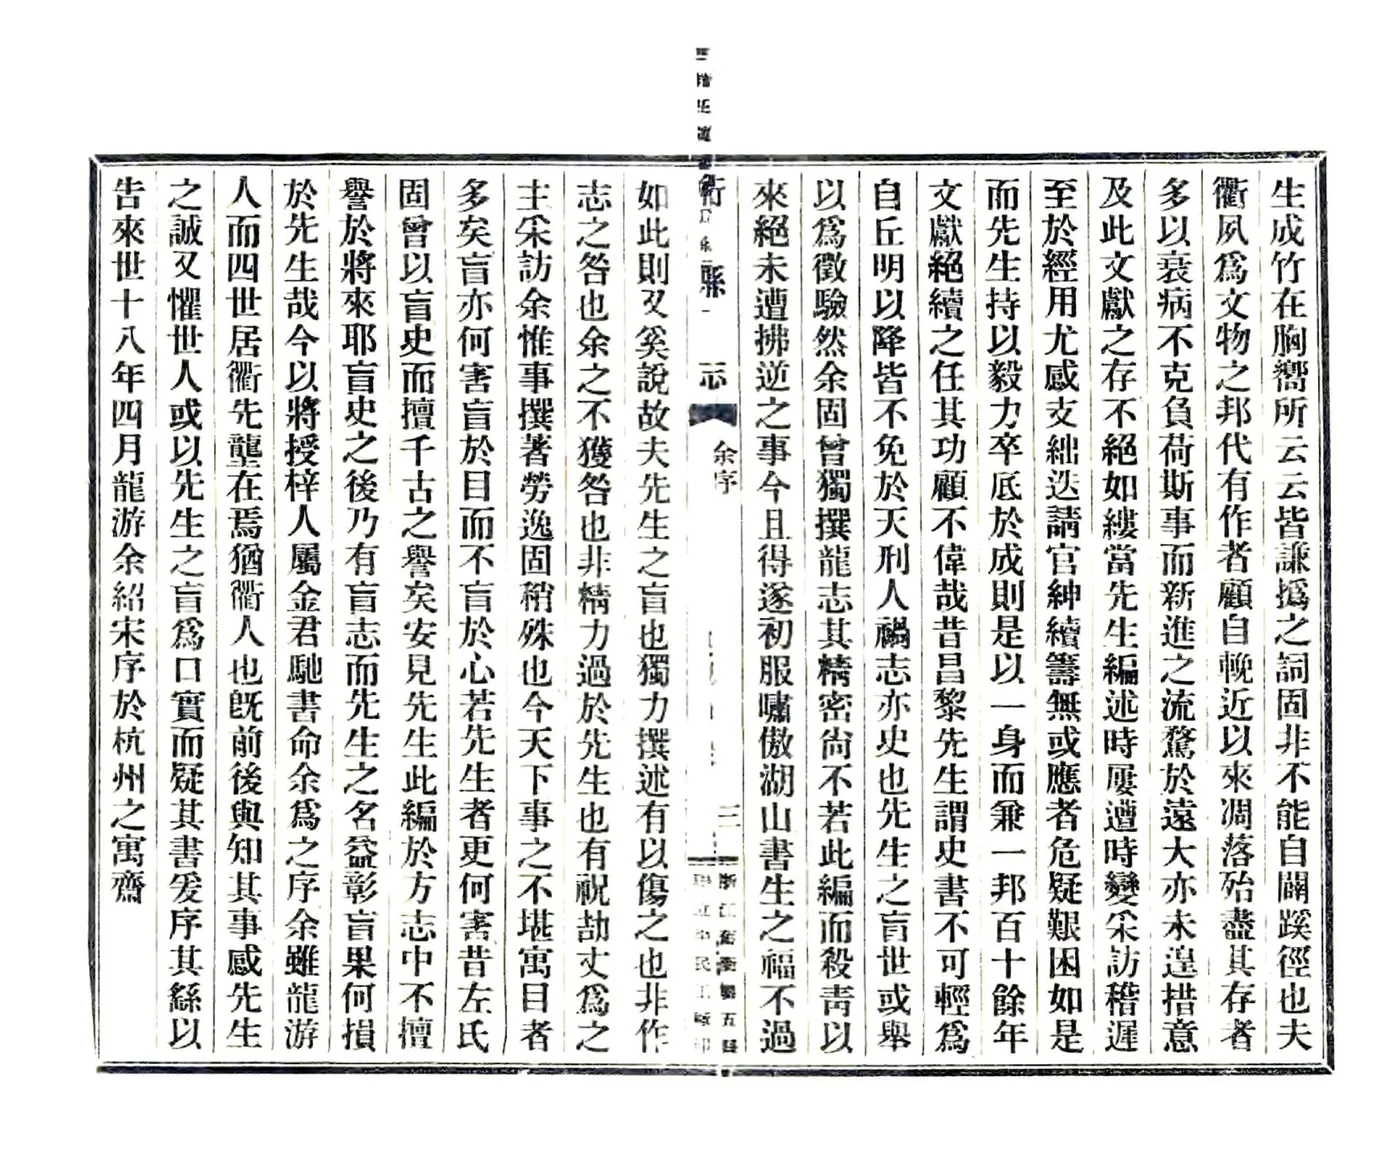 生成竹在胸嚮所云云皆謙撝之詞固非不能自闢蹊徑也夫
衢夙爲文物之邦代有作者顧自輓近以來凋落殆盡其存者
多以衰病不克負荷斯事而新進之流騖於遠大亦未遑措意
及此文獻之存不絕如縷當先生編述時屢遭時變采訪稽遲
至於經用尤感支絀迭請官紳續籌無或應者危疑艱困如是
而先生持以毅力卒底於成則是以一身而兼一邦百十餘年
文獻絕續之任其功顧不偉哉昔昌黎先生謂史書不可輕爲
自丘明以降皆不免於天刑人禍志亦史也先生之盲世或舉
以爲徵驗然余固曾獨撰龍志其精密尙不若此編而殺靑以
來絕未遭拂逆之事今且得遂初服嘯傲湖山書生之福不過
衢縣志
余序
三
如此則又奚說故夫先生之盲也獨力撰述有以傷之也非作
志之咎也余之不獲咎也非精力過於先生也有祝劼丈爲之
主采訪余惟事撰著勞逸固稍殊也今天下事之不堪寓目者
多矣盲亦何害盲於目而不盲於心若先生者更何害昔左氏
固曾以盲史而擅千古之譽矣安見先生此編於方志中不擅
譽於將來耶盲史之後乃有盲志而先生之名益彰盲果何損
於先生哉今以將授梓人屬金君馳書命余爲之序余雖龍游
人而四世居衢先壟在焉猶衢人也旣前後與知其事感先生
之誠又懼世人或以先生之盲爲口實而疑其書爰序其繇以
告來世十八年四月龍游余紹宋序於杭州之寓齋